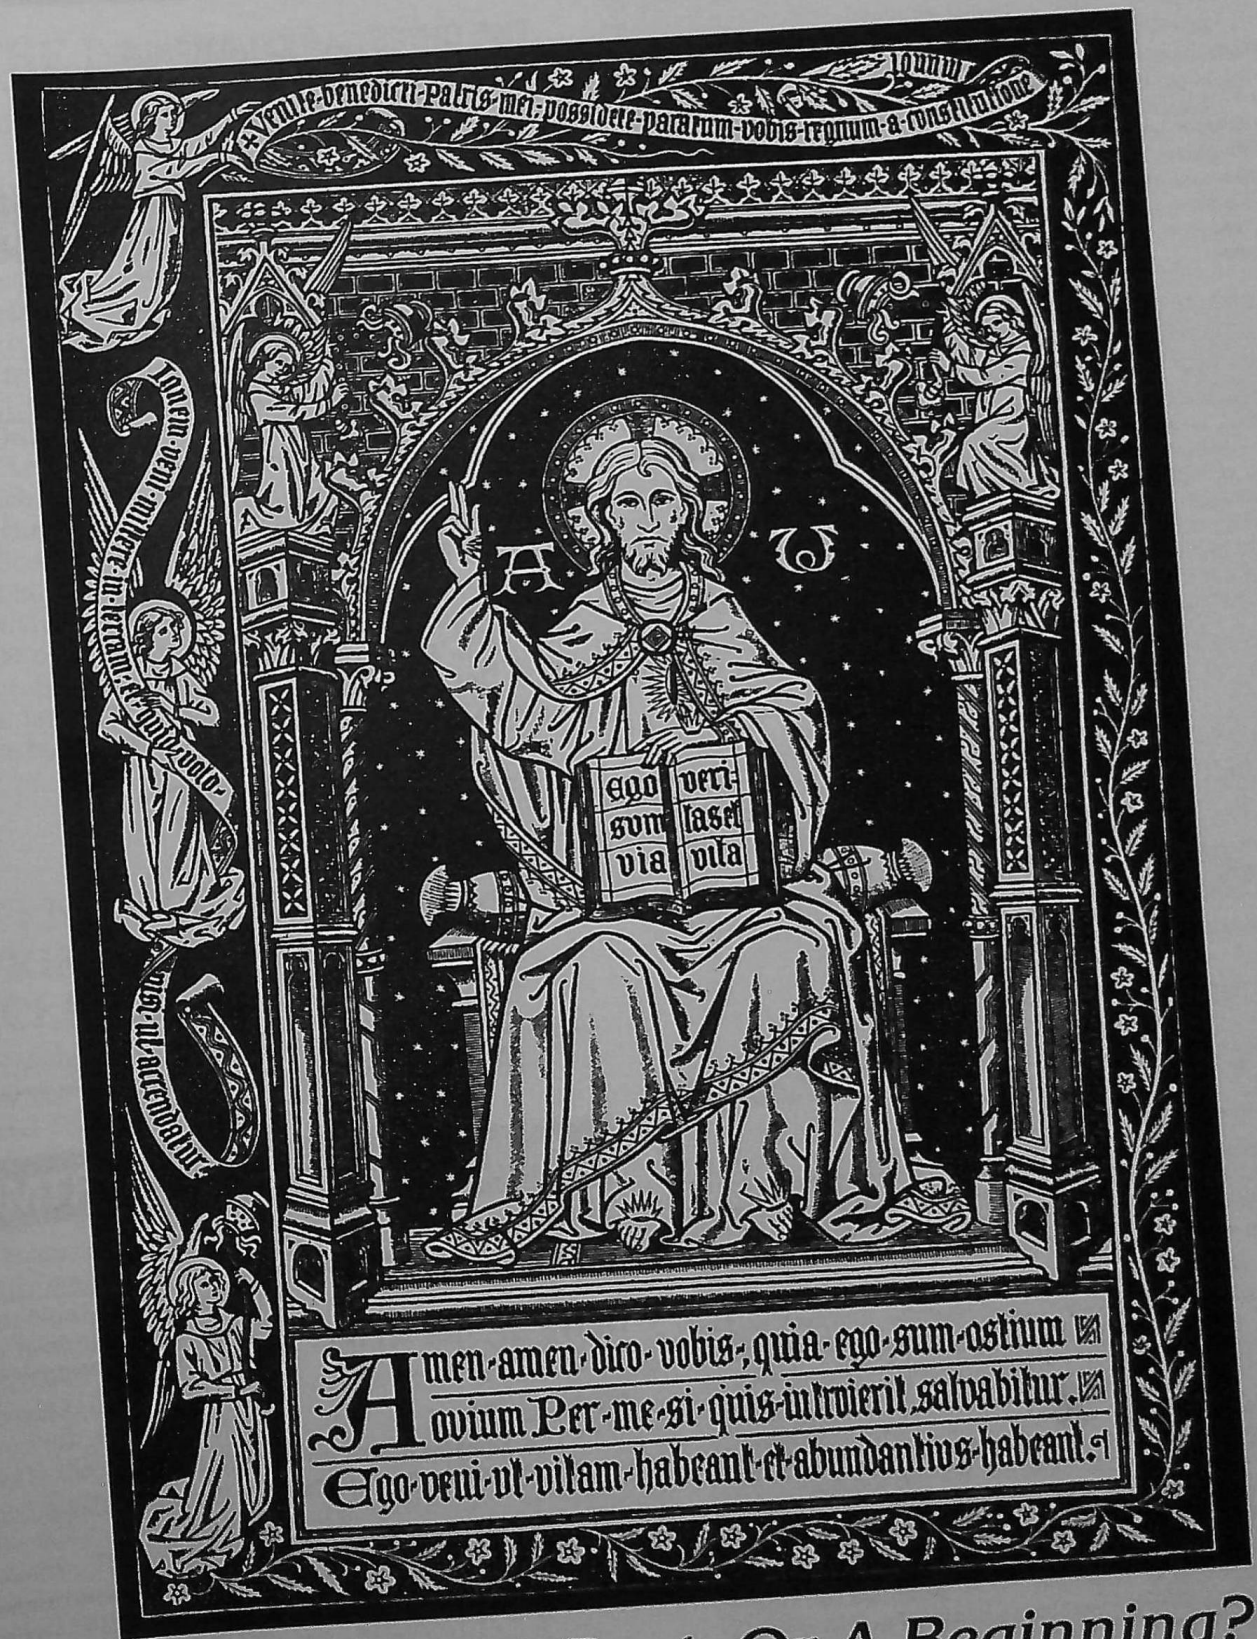 ✠ Venite · benedicti · Patris · mei: possidete · paratum · vobis · regnum · a · constitutione
mundi
Ignem · veni · mittere · in · terram: et · quid · volo ·
nisi · ut · accendatur
A ω
Ego
sum
via
veri-
tas et
vita
Amen · amen · dico · vobis, quia · ego · sum · ostium
ovium Per · me · si · quis · introierit, salvabitur.
Ego · veni · ut · vitam · habeant · et · abundantius · habeant.
Or A Beginning?